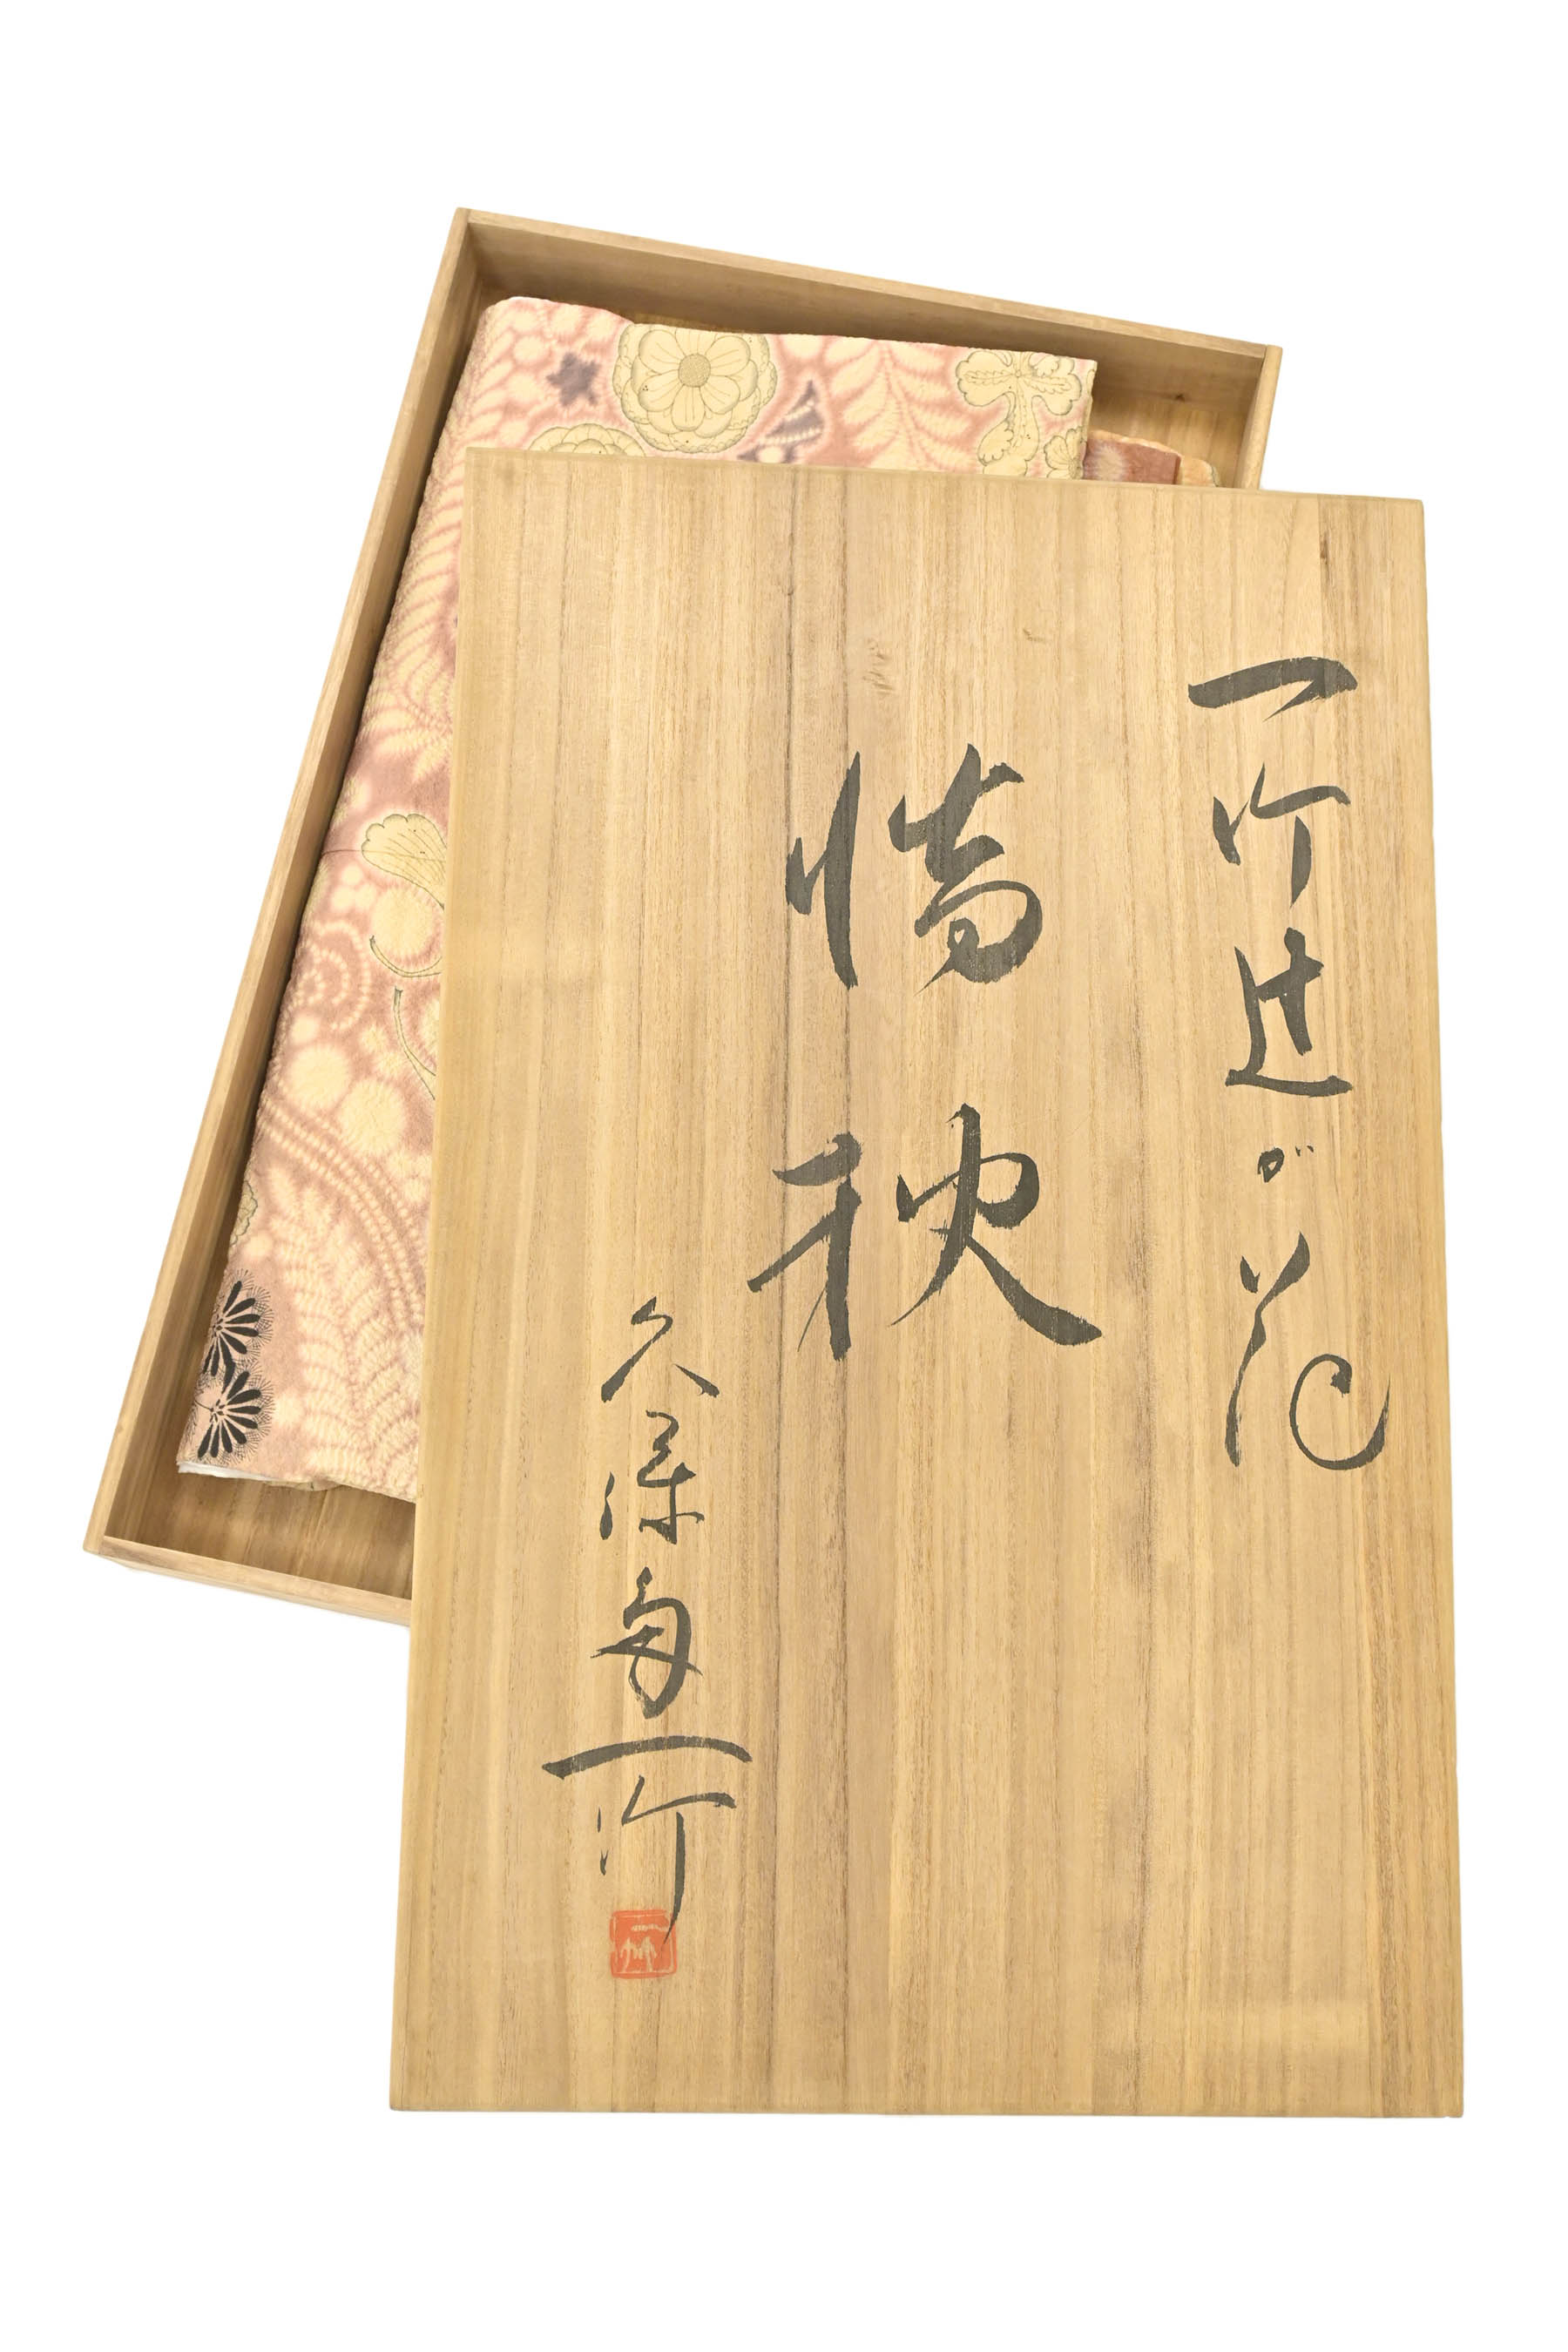 一竹辻が花
情秋
久保田一竹
一竹